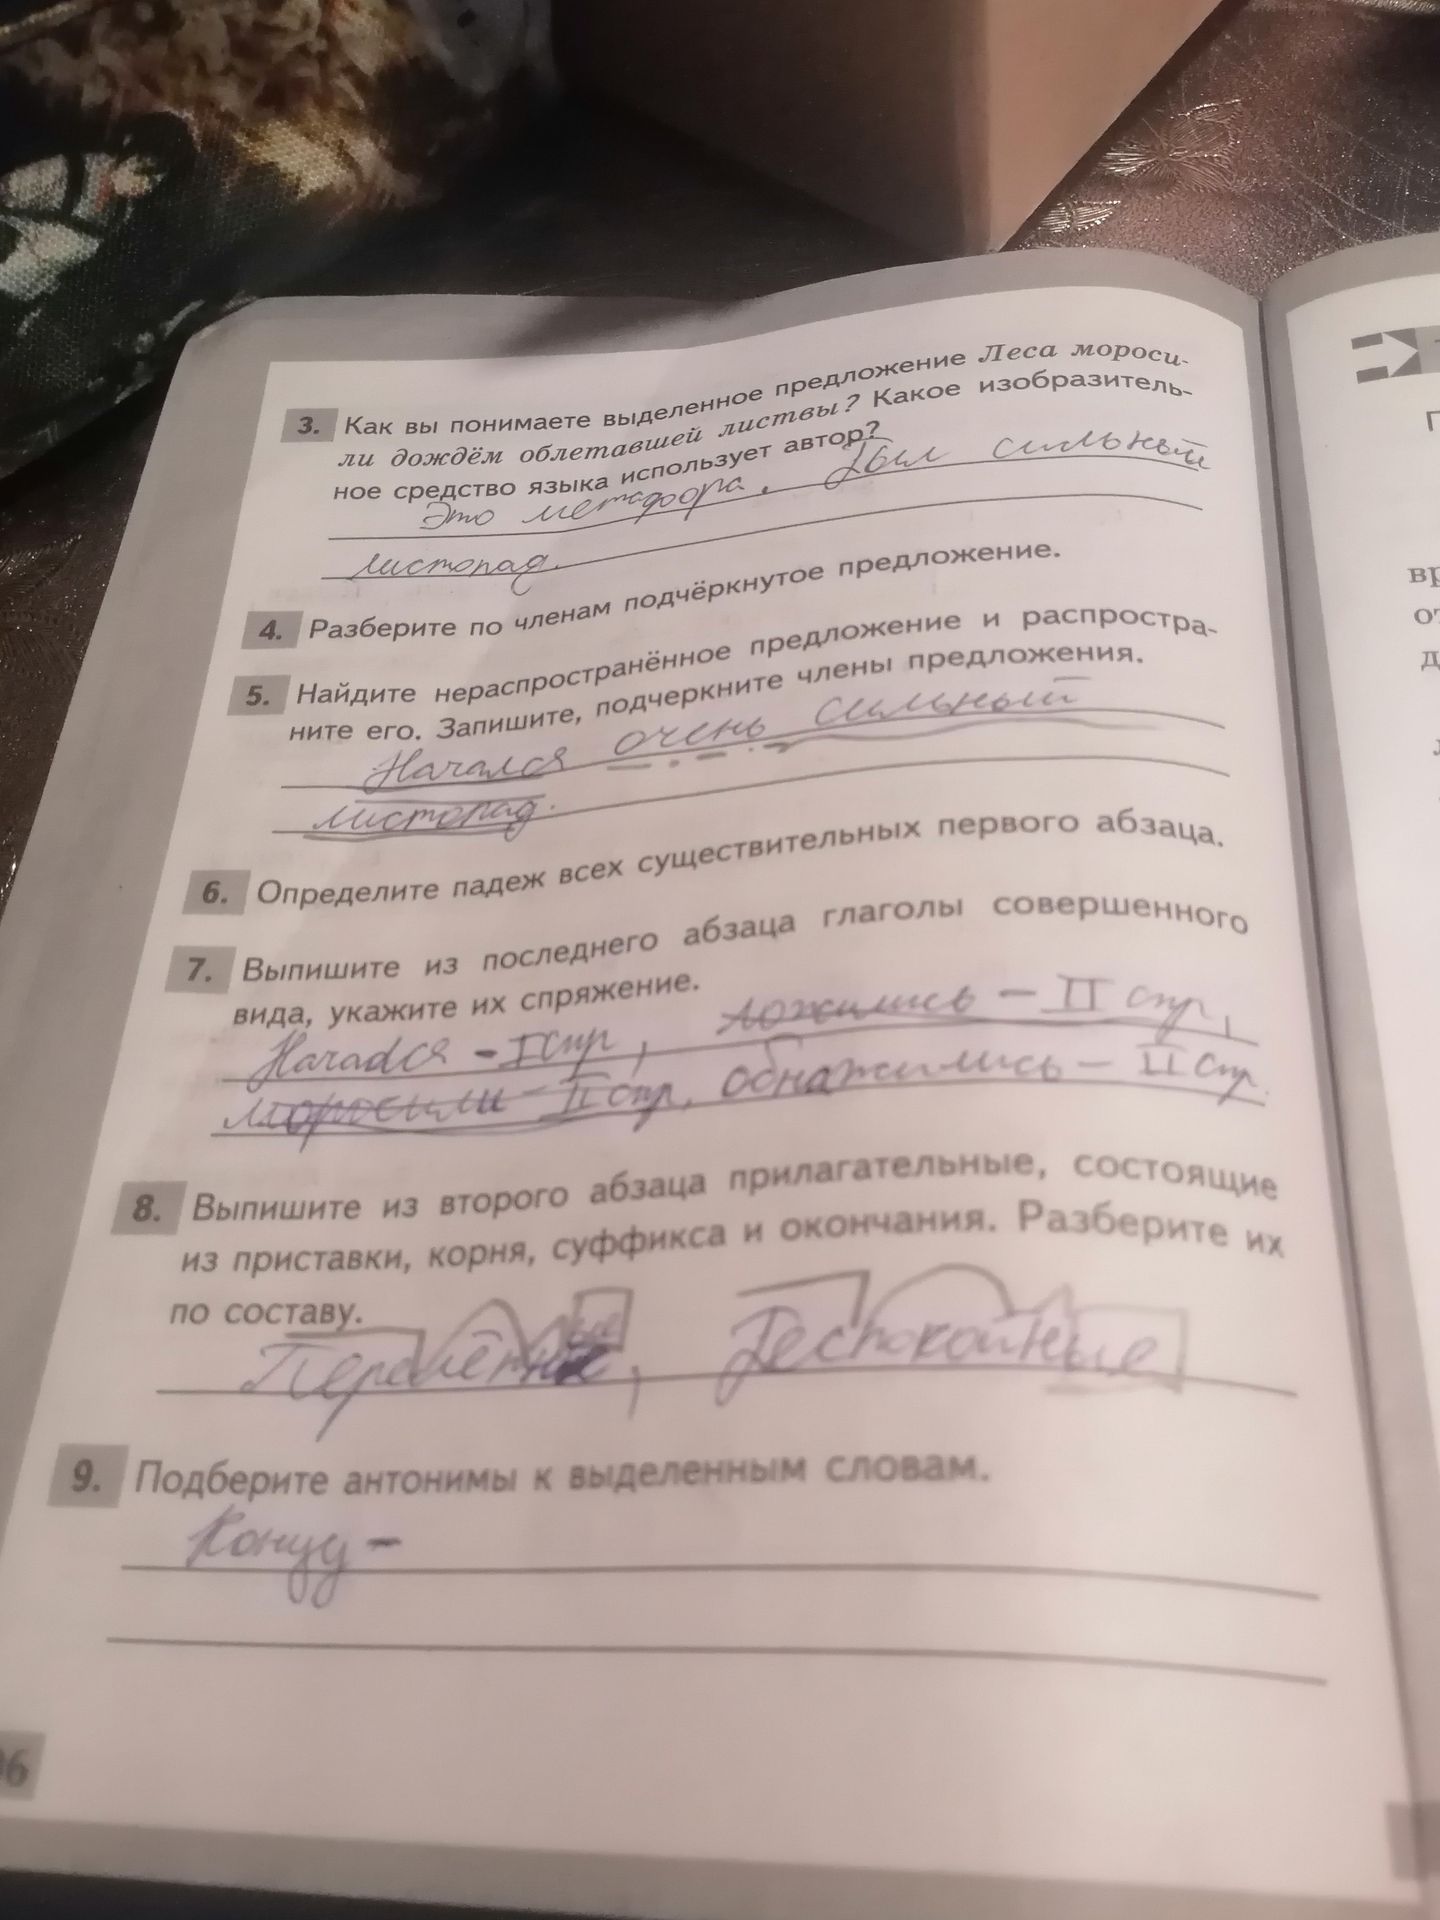 3. Как вы понимаете выделенное предложение Леса мороси-
ли дождём облетавшей листвы? Какое изобразитель-
ное средство языка использует автор?
Это метафора. Был сильный
листопад.
4. Разберите по членам подчёркнутое предложение.
5. Найдите нераспространённое предложение и распростра-
ните его. Запишите, подчеркните члены предложения.
Начался очень сильный
листопад.
6. Определите падеж всех существительных первого абзаца.
7. Выпишите из последнего абзаца глаголы совершенного
вида, укажите их спряжение.
Начался - I спр, ложились - II спр,
моросили - II спр, обнажились - II спр.
8. Выпишите из второго абзаца прилагательные, состоящие
из приставки, корня, суффикса и окончания. Разберите их
по составу.
Перелётные, беспокойные
9. Подберите антонимы к выделенным словам.
Концу -
П
вр
от
д